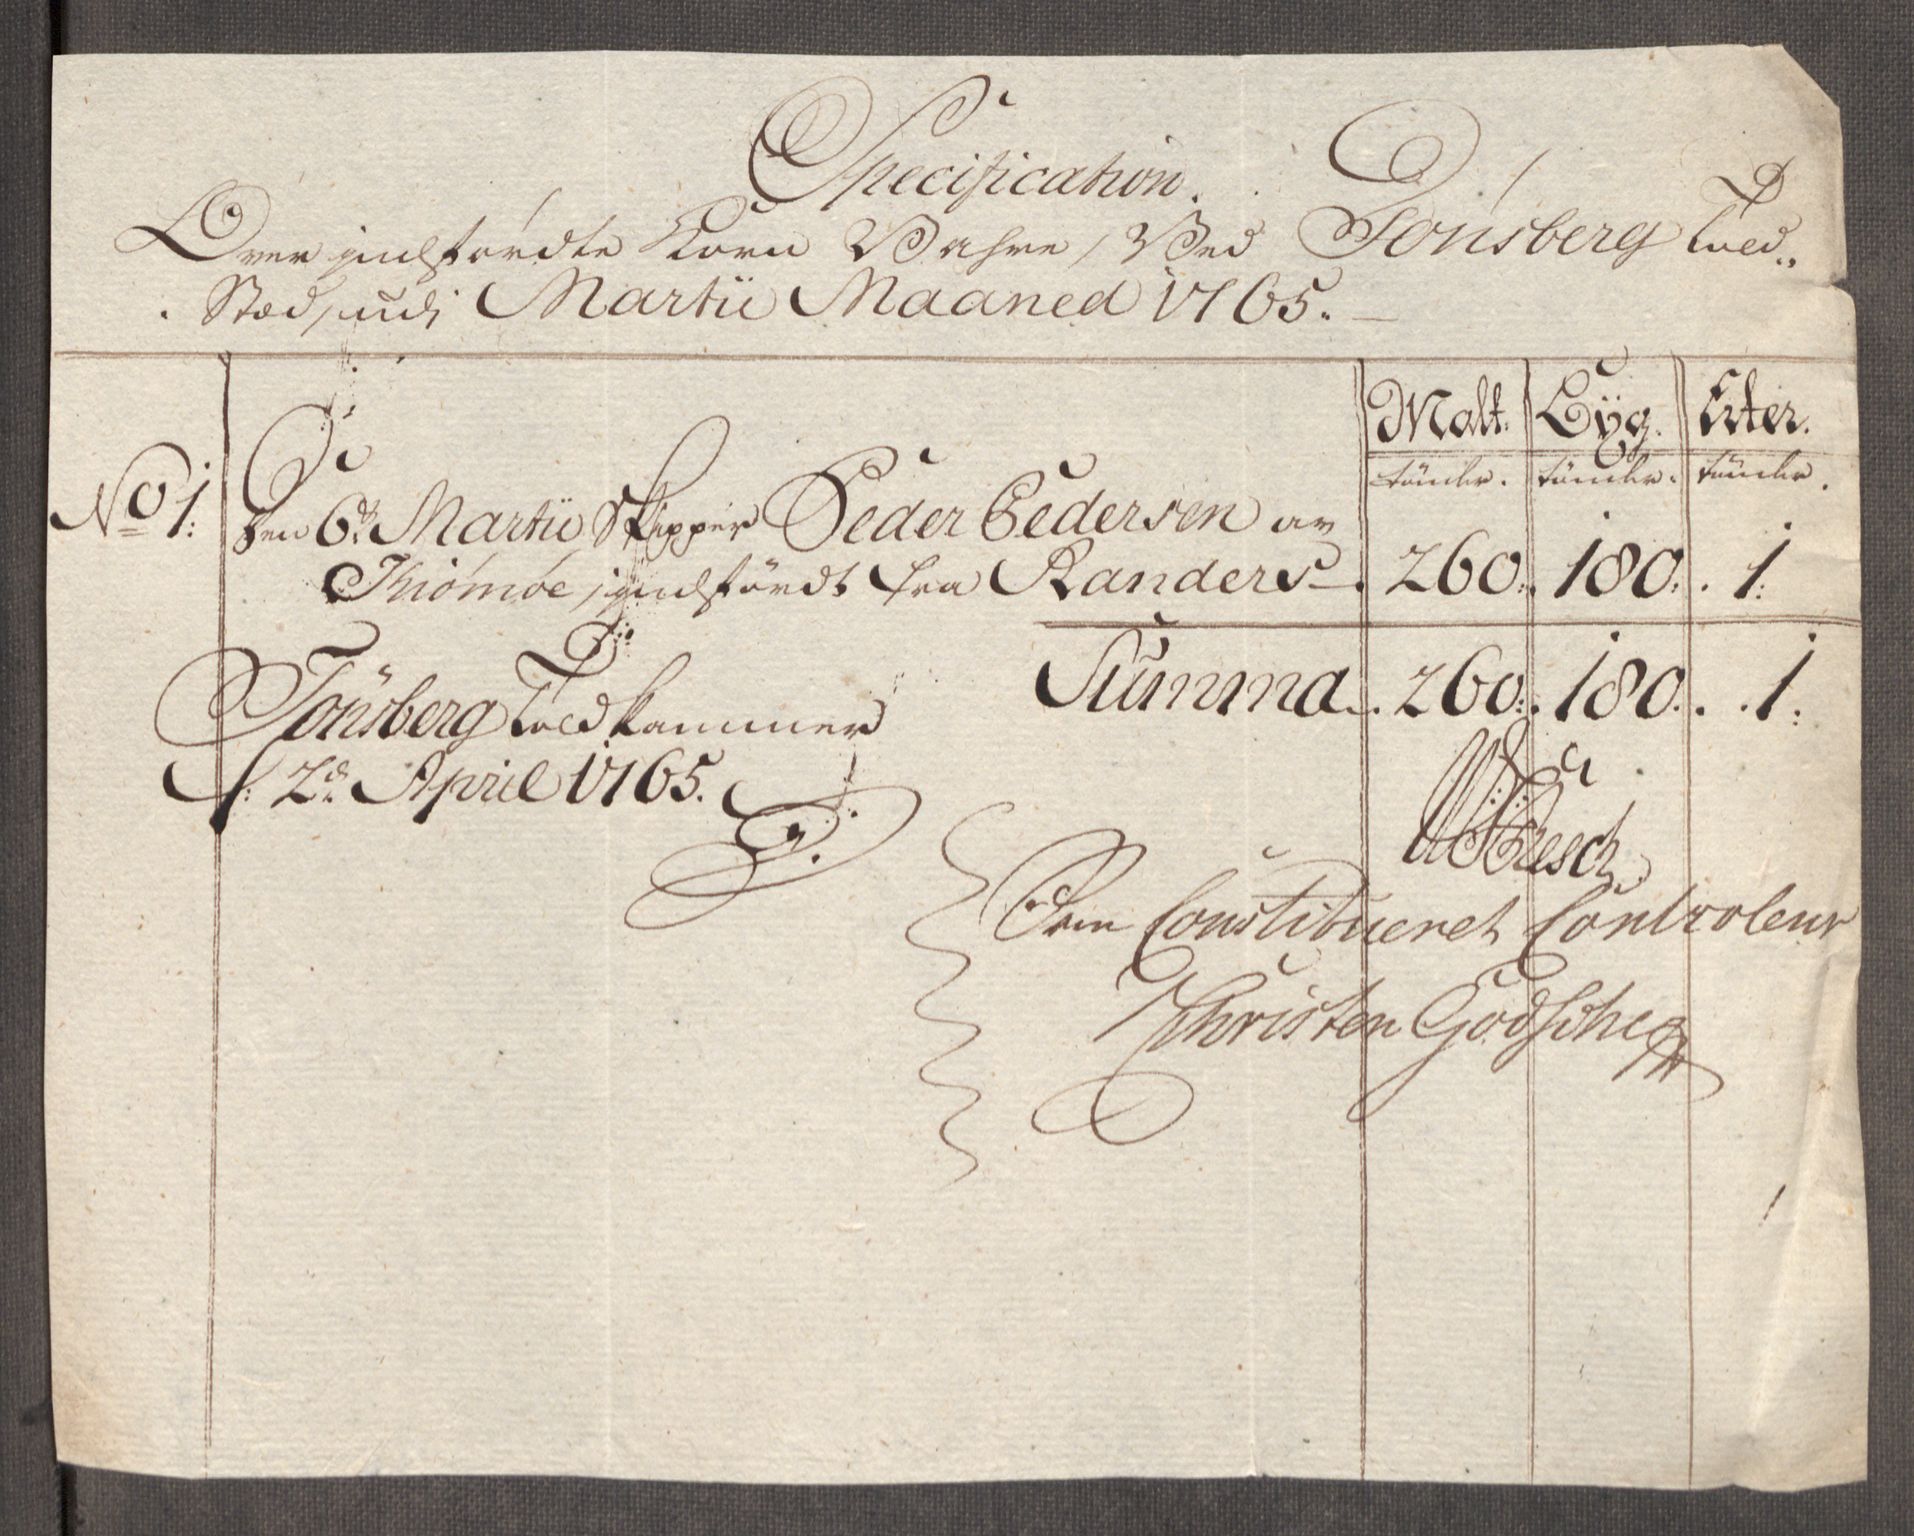 Specification.
Over indførdte Korn Vahre, Ved Tönsberg Told-
Stæd, udi Martii Maaned 1765.
Malt. Byg. Erter.
tönder. tönder. tönder.
No 1. Den 6t. Martii Skipper Peder Pedersen av
Thiömöe, indfördt fra Randers. 260. 180. 1.
Summa. 260. 180. 1.
Tönsberg Toldkammer
d. 2d. April 1765.
Den Constitueret Controleur
Christen Godtsche